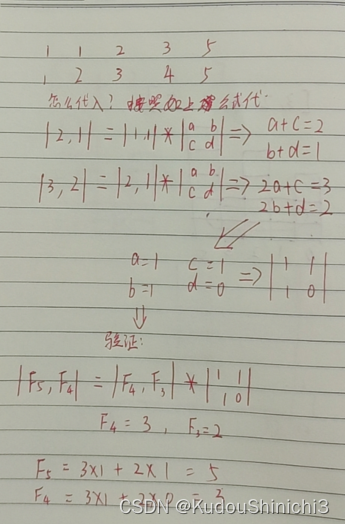 1 1 2 3 5
1 2 3 4 5
怎么代入? 按照如上 公式代
|2,1| = |1,1| * |a b c d| => a+c=2
b+d=1
|3,2| = |2,1| * |a b c d| => 2a+c=3
2b+d=2
a=1 c=1 => |1 1
b=1 d=0 1 0|
验证:
|F5,F4| = |F4,F3| * |1 1 1 0|
F4=3, F3=2
F5 = 3x1 + 2x1 = 5
F4 = 3x1 + 2x0 = 3
CSDN @KudouShinichi3